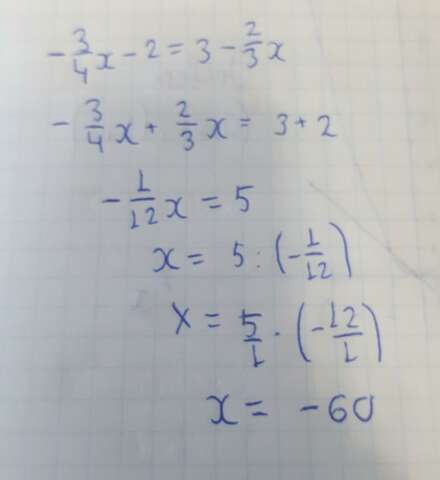 -3/4x - 2 = 3 - 2/3x
-3/4x + 2/3x = 3 + 2
-1/12x = 5
x = 5 : (-1/12)
x = 5/1 · (-12/1)
x = -60